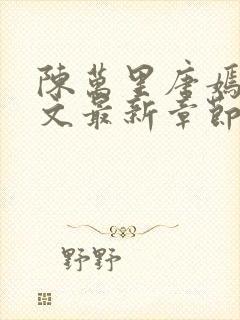 陳萬里唐嫣
文最新章節
野野